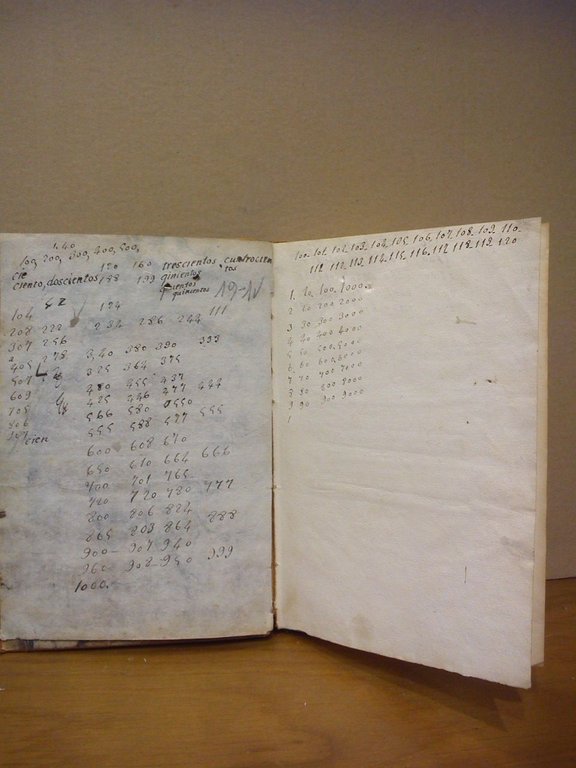 1. 40
100, 200, 300, 400, 500,
cie 120 160 trescientos, cuatrocien
ciento, doscientos 188 199 qinientos tos
quinientos 19-IV
104 52 124
208 222 234 286 244 111
307 256
278 340 380 390 333
405 325 364 375
507
609 480 455 437
705 425 446 477 444
806 566 580 0550
907 cien 555 588 577 555
600 608 670
650 610 664 666
700 701 765
720 720 780 777
800 806 824
865 803 864 888
900 907 940
960 908 950 999
1000.
100. 101. 102. 103. 104. 105. 106. 107. 108. 109. 110.
111 112 113. 114. 115. 116. 117 118. 119 120
1. 10. 100. 1000.
2 20 200 2000
3 30 300 3000
4 40 400 4000
5 50 500 5000
6 60 600 6000
7 70 700 7000
8 80 800 8000
9 90 900 9000
1